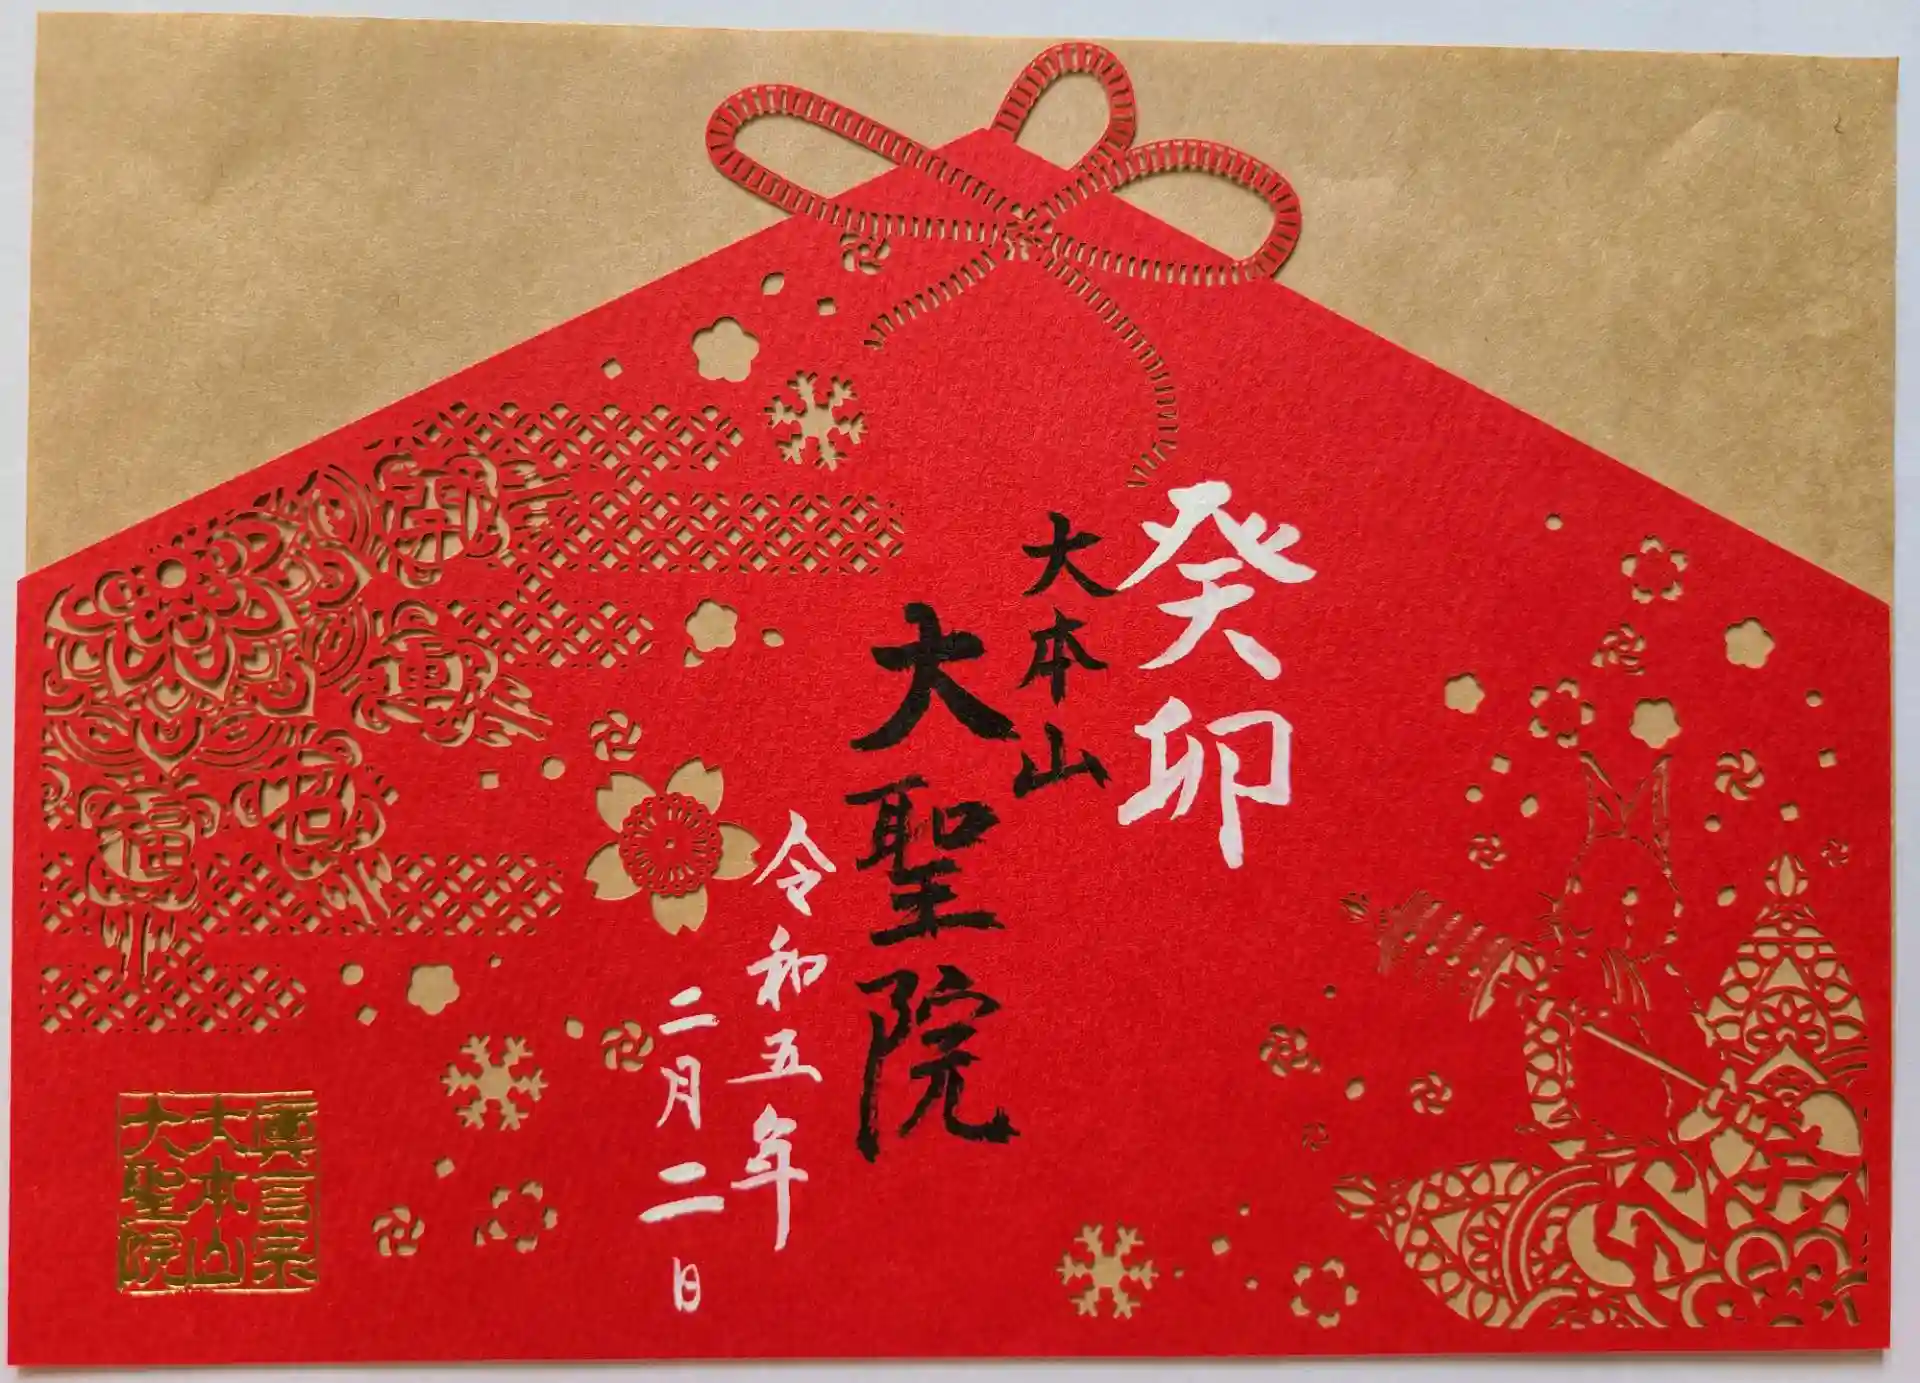 癸卯
大本山
大聖院
令和五年
二月二日
開運
招福
真言宗
大本山
大聖院